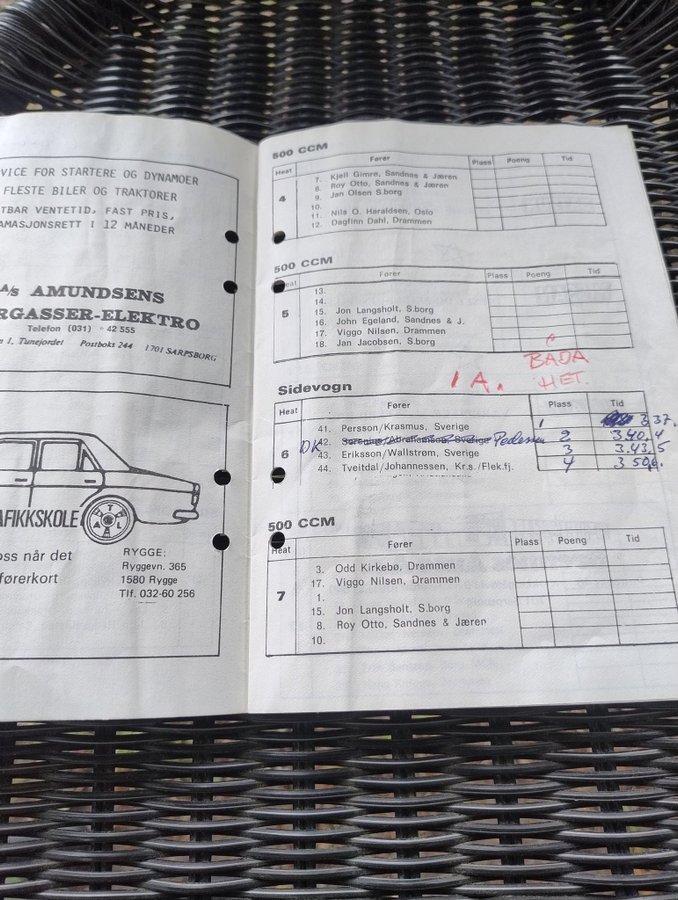 VICE FOR STARTERE OG DYNAMOER
FLESTE BILER OG TRAKTORER
TBAR VENTETID, FAST PRIS,
AMASJONSRETT I 12 MÅNEDER
A/S AMUNDSENS
RGASSER-ELEKTRO
Telefon (031) - 42 555
n 1, Tunejordet Postboks 244 1701 SARPSBORG
AFIKKSKOLE
TAL
oss når det
førerkort
RYGGE:
Ryggevn. 365
1580 Rygge
Tlf. 032-60 256
500 CCM
Heat Fører Plass Poeng Tid
4
7. Kjell Gimre, Sandnes & Jæren
8. Roy Otto, Sandnes & Jæren
9. Jan Olsen S.borg
10.
11. Nils O. Haraldsen, Oslo
12. Dagfinn Dahl, Drammen
500 CCM
Heat Fører Plass Poeng Tid
5
13.
14.
15. Jon Langsholt, S.borg
16. John Egeland, Sandnes & J.
17. Viggo Nilsen, Drammen
18. Jan Jacobsen, S.borg
1 A. BADA
HET.
Sidevogn
Heat Fører Plass Tid
6
41. Persson/Krasmus, Sverige 1 3.37.
DK 42. Pedersen 2 3.40.4
43. Eriksson/Wallstrøm, Sverige 3 3.43.5
44. Tveitdal/Johannessen, Kr.s./Flek.fj. 4 3 50.
500 CCM
Heat Fører Plass Poeng Tid
7
3. Odd Kirkebø, Drammen
17. Viggo Nilsen, Drammen
1.
15. Jon Langsholt, S.borg
8. Roy Otto, Sandnes & Jæren
10.